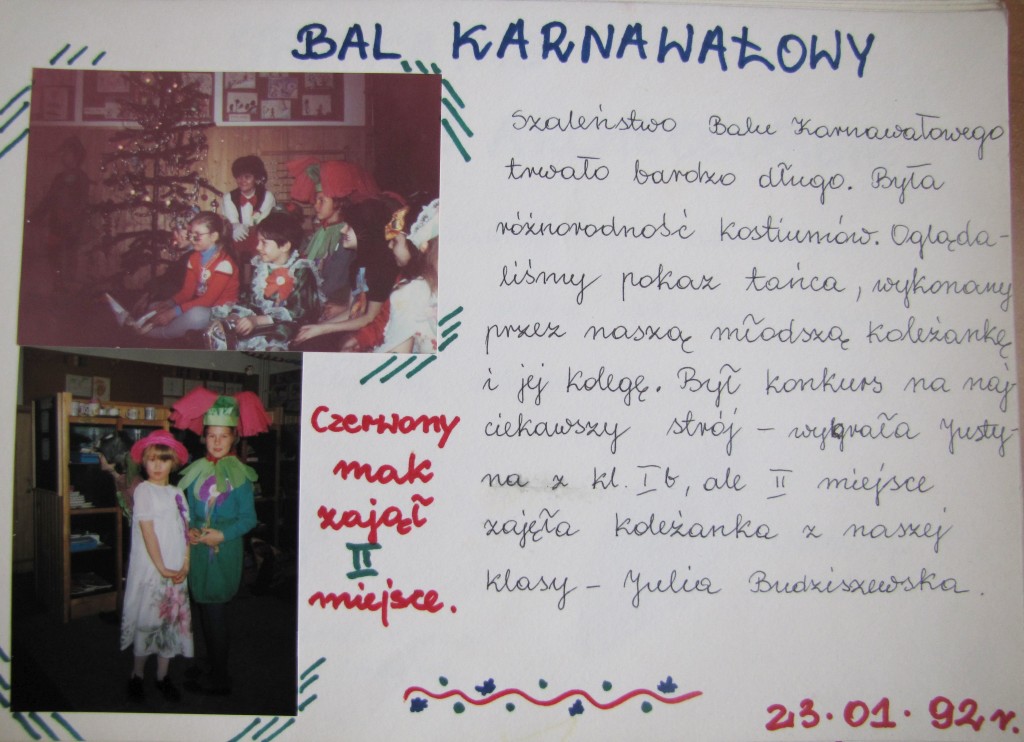 BAL KARNAWAŁOWY
Szaleństwo Balu Karnawałowego
trwało bardzo długo. Była
różnorodność kostiumów. Ogląda-
liśmy pokaz tańca, wykonany
przez naszą młodszą koleżankę
i jej kolegę. Był konkurs na naj
ciekawszy strój – wygrała Justy-
na z kl. I b, ale II miejsce
zajęła koleżanka z naszej
klasy – Julia Budziszewska.
Czerwony
mak
zajął
II
miejsce.
23.01.92r.